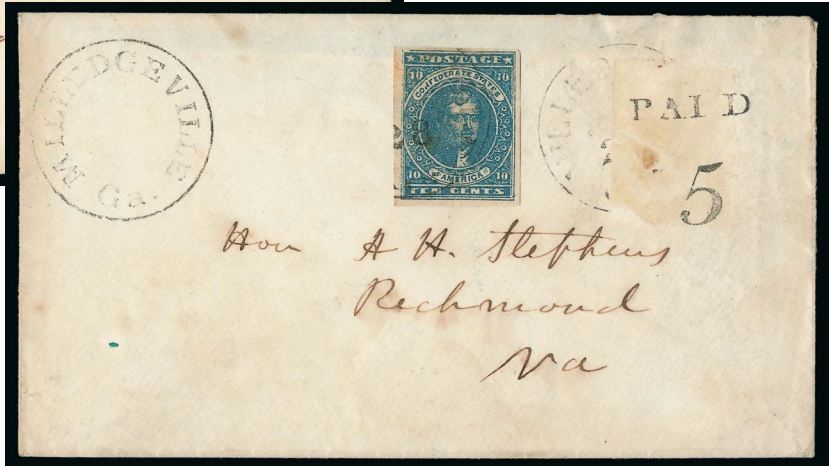 MILLEDGEVILLE
Ga.
POSTAGE
10 10
CONFEDERATE STATES
OF AMERICA
10 10
TEN CENTS
PAID
5
Hon A H. Stephens
Richmond
Va